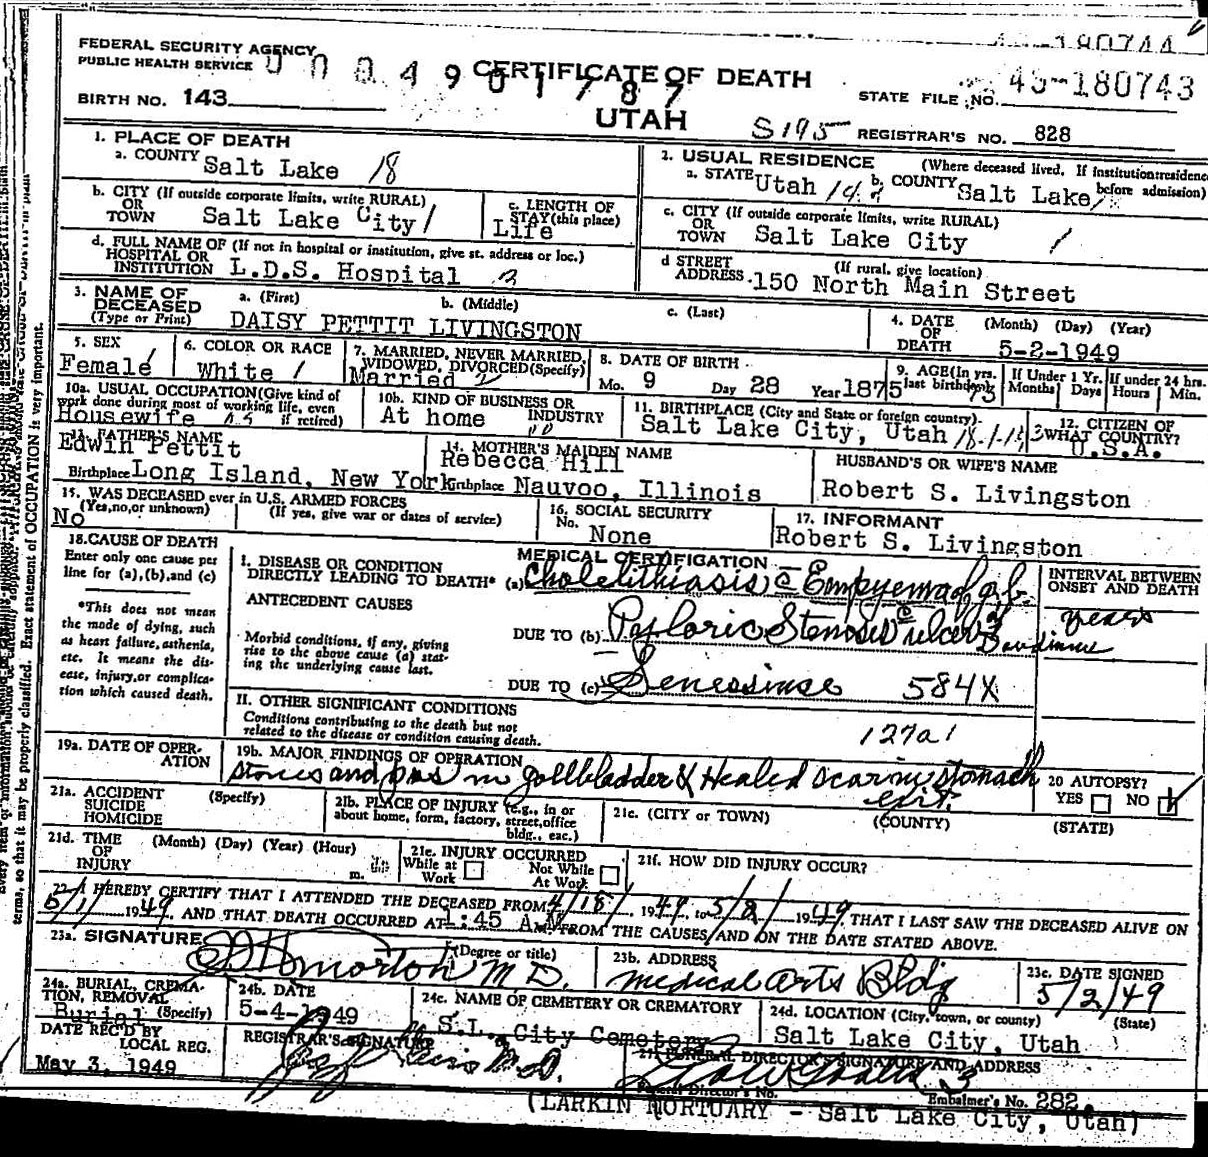 FEDERAL SECURITY AGENCY
PUBLIC HEALTH SERVICE
004901787
CERTIFICATE OF DEATH
UTAH
BIRTH NO. 143
STATE FILE NO. 45-180743
S195 REGISTRAR'S NO. 828
1. PLACE OF DEATH
a. COUNTY Salt Lake 18
2. USUAL RESIDENCE (Where deceased lived. If institution: residence before admission)
a. STATE Utah b. COUNTY Salt Lake
b. CITY (If outside corporate limits, write RURAL) OR TOWN Salt Lake City 1
c. LENGTH OF STAY (this place) Life
c. CITY (If outside corporate limits, write RURAL) OR TOWN Salt Lake City 1
d. FULL NAME OF (If not in hospital or institution, give st. address or loc.) HOSPITAL OR INSTITUTION L.D.S. Hospital 2
d STREET ADDRESS (If rural, give location) 150 North Main Street
3. NAME OF DECEASED (Type or Print) a. (First) b. (Middle) c. (Last)
DAISY PETTIT LIVINGSTON
4. DATE OF DEATH (Month) (Day) (Year) 5-2-1949
5. SEX Female 1
6. COLOR OR RACE White 1
7. MARRIED, NEVER MARRIED, WIDOWED, DIVORCED (Specify) Married 2
8. DATE OF BIRTH Mo. 9 Day 28 Year 1875
9. AGE (In yrs. last birthday) 73
If Under 1 Yr. Months Days
If under 24 hrs. Hours Min.
10a. USUAL OCCUPATION (Give kind of work done during most of working life, even if retired) Housewife
10b. KIND OF BUSINESS OR INDUSTRY At home
11. BIRTHPLACE (City and State or foreign country) Salt Lake City, Utah
12. CITIZEN OF WHAT COUNTRY? U.S.A.
13. FATHER'S NAME Edwin Pettit
Birthplace Long Island, New York
14. MOTHER'S MAIDEN NAME Rebecca Hill
Birthplace Nauvoo, Illinois
HUSBAND'S OR WIFE'S NAME
Robert S. Livingston
15. WAS DECEASED ever in U.S. ARMED FORCES
(Yes, no, or unknown) (If yes, give war or dates of service)
No
16. SOCIAL SECURITY No. None
17. INFORMANT
Robert S. Livingston
18. CAUSE OF DEATH
Enter only one cause per line for (a), (b), and (c)
*This does not mean the mode of dying, such as heart failure, asthenia, etc. It means the disease, injury, or complication which caused death.
MEDICAL CERTIFICATION
I. DISEASE OR CONDITION DIRECTLY LEADING TO DEATH* (a) Cholelithiasis c Empyema of g.b.
INTERVAL BETWEEN ONSET AND DEATH
years
ANTECEDENT CAUSES
Morbid conditions, if any, giving rise to the above cause (a) stating the underlying cause last.
DUE TO (b) Pyloric Stenosis c ulcer
DUE TO (c) 584X
II. OTHER SIGNIFICANT CONDITIONS
Conditions contributing to the death but not related to the disease or condition causing death.
127a1
19a. DATE OF OPERATION
19b. MAJOR FINDINGS OF OPERATION
stones and pus in gallbladder & Healed scar in stomach exit.
20 AUTOPSY? YES NO
21a. ACCIDENT SUICIDE HOMICIDE (Specify)
21b. PLACE OF INJURY (e.g., in or about home, form, factory, street, office bldg., eac.)
21c. (CITY or TOWN) (COUNTY) (STATE)
21d. TIME OF INJURY (Month) (Day) (Year) (Hour) m.
21e. INJURY OCCURRED While at Work Not While At Work
21f. HOW DID INJURY OCCUR?
22. I HEREBY CERTIFY THAT I ATTENDED THE DECEASED FROM 4/18/ 1949, to 5/2/ 1949, THAT I LAST SAW THE DECEASED ALIVE ON
5/1/ 1949, AND THAT DEATH OCCURRED AT 1:45 A.M. FROM THE CAUSES AND ON THE DATE STATED ABOVE.
23a. SIGNATURE (Degree or title) Morton M.D.
23b. ADDRESS Medical Arts Bldg
23c. DATE SIGNED 5/2/49
24a. BURIAL, CREMATION, REMOVAL (Specify) Burial
24b. DATE 5-4-1949
24c. NAME OF CEMETERY OR CREMATORY S.L. City Cemetery
24d. LOCATION (City, town, or county) (State) Salt Lake City, Utah
DATE REC'D BY LOCAL REG.
May 3, 1949
REGISTRAR'S SIGNATURE M.D.
FUNERAL DIRECTOR'S SIGNATURE AND ADDRESS
Funeral Director's No. Embalmer's No. 282
(LARKIN MORTUARY - Salt Lake City, Utah)
terms, so that it may be properly classified. Exact statement of OCCUPATION is very important.